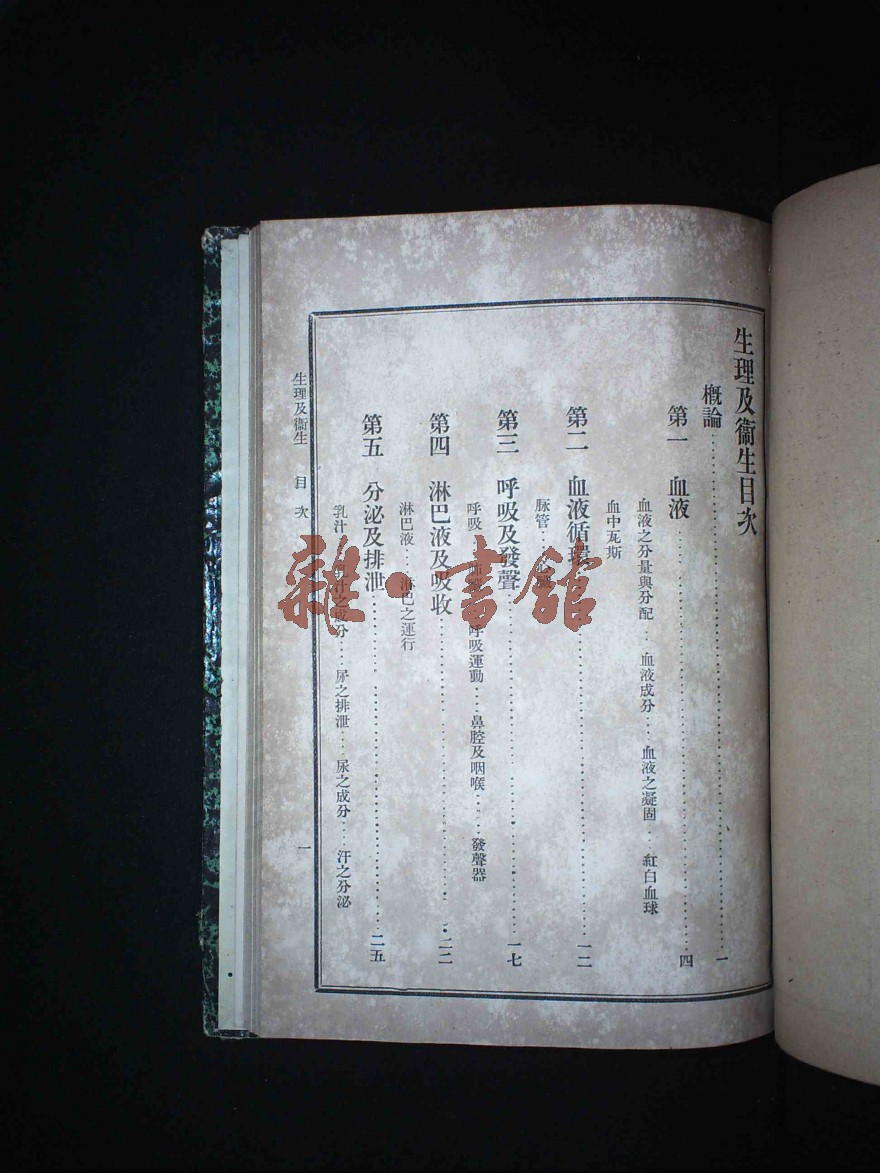 生理及衞生目次
概論……一
第一 血液……四
血液之分量與分配…血液成分…血液之凝固…紅白血球
血中瓦斯
第二 血液循環……一二
脉管…心臟
第三 呼吸及發聲……一七
呼吸…呼吸運動…鼻腔及咽喉…發聲器
第四 淋巴液及吸收……二二
淋巴液…淋巴之運行
第五 分泌及排泄……二五
乳汁…乳汁之成分…尿之排泄…尿之成分…汗之分泌
生理及衞生 目次 一
雜·書館